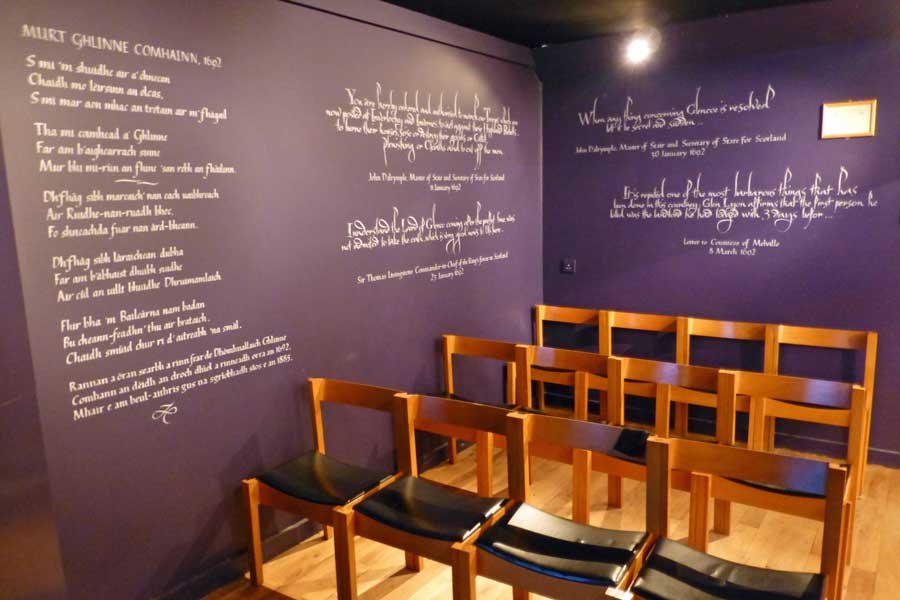 MURT GHLINNE COMHAINN, 1692
S mi 'm shuidhe air a' chnocan
Chaidh mo léirsinn an olcas,
S mi mar aon mhac an trotain air m'fhàgail
Tha mi coimhead a' Ghlinne
Far am b'aighearrach sinne
Mur bhu mi-rùn an fhine 'san robh an fhàdunn.
Dh'fhàg sibh marcaich' nan each uaibhreach
Air Ruidhe-nan-ruadh bhoc,
Fo shneachda fuar nan àrd-bheann.
Dh'fhàg sibh làraichean dubha
Far am b'àbhaist dhuibh suidhe
Air cùl an uillt bhuidhe Dhruimanlaich
Flur bha 'm Bailcàrna nam badan
Bu cheann-feadhn' thu air brataich,
Chaidh smùid chur ri d'aitreabh 'na smàl.
Rannan a òran searbh a rinn fear de Dhòmhnallaich Ghlinne
Comhann an dèidh an droch dhiol a rinneadh orra an 1692.
Mhair e am beul-aithris gus na sgriobhadh sios e an 1885.
You are hereby ordered and authorised to march our Troops which are
now posted at Inverlochy and Inverness
to burne their houses, seise or destroy their goods or Cattell,
plenishing or Cloaths and to cutt off the men.
John Dalrymple, Master of Stair and Secretary of State for Scotland
11 January 1692
I understand the Laird of Glencoe coming after the prefixt time was
not admitted to take the oath, which is very good news to us here...
Sir Thomas Livingstone Commander-in-Chief of the King's forces in Scotland
23 January 1692
When any thing concerning Glencoe is resolved
let it be secret and sudden...
John Dalrymple, Master of Stair and Secretary of State for Scotland
30 January 1692
It is reputed one of the most barbarous things that has
been done in this countrey, Glen Lyon affirms that the first person he
killed was the landlord he had lodged with 3 days befor...
Letter to Countess of Melville
8 March 1692